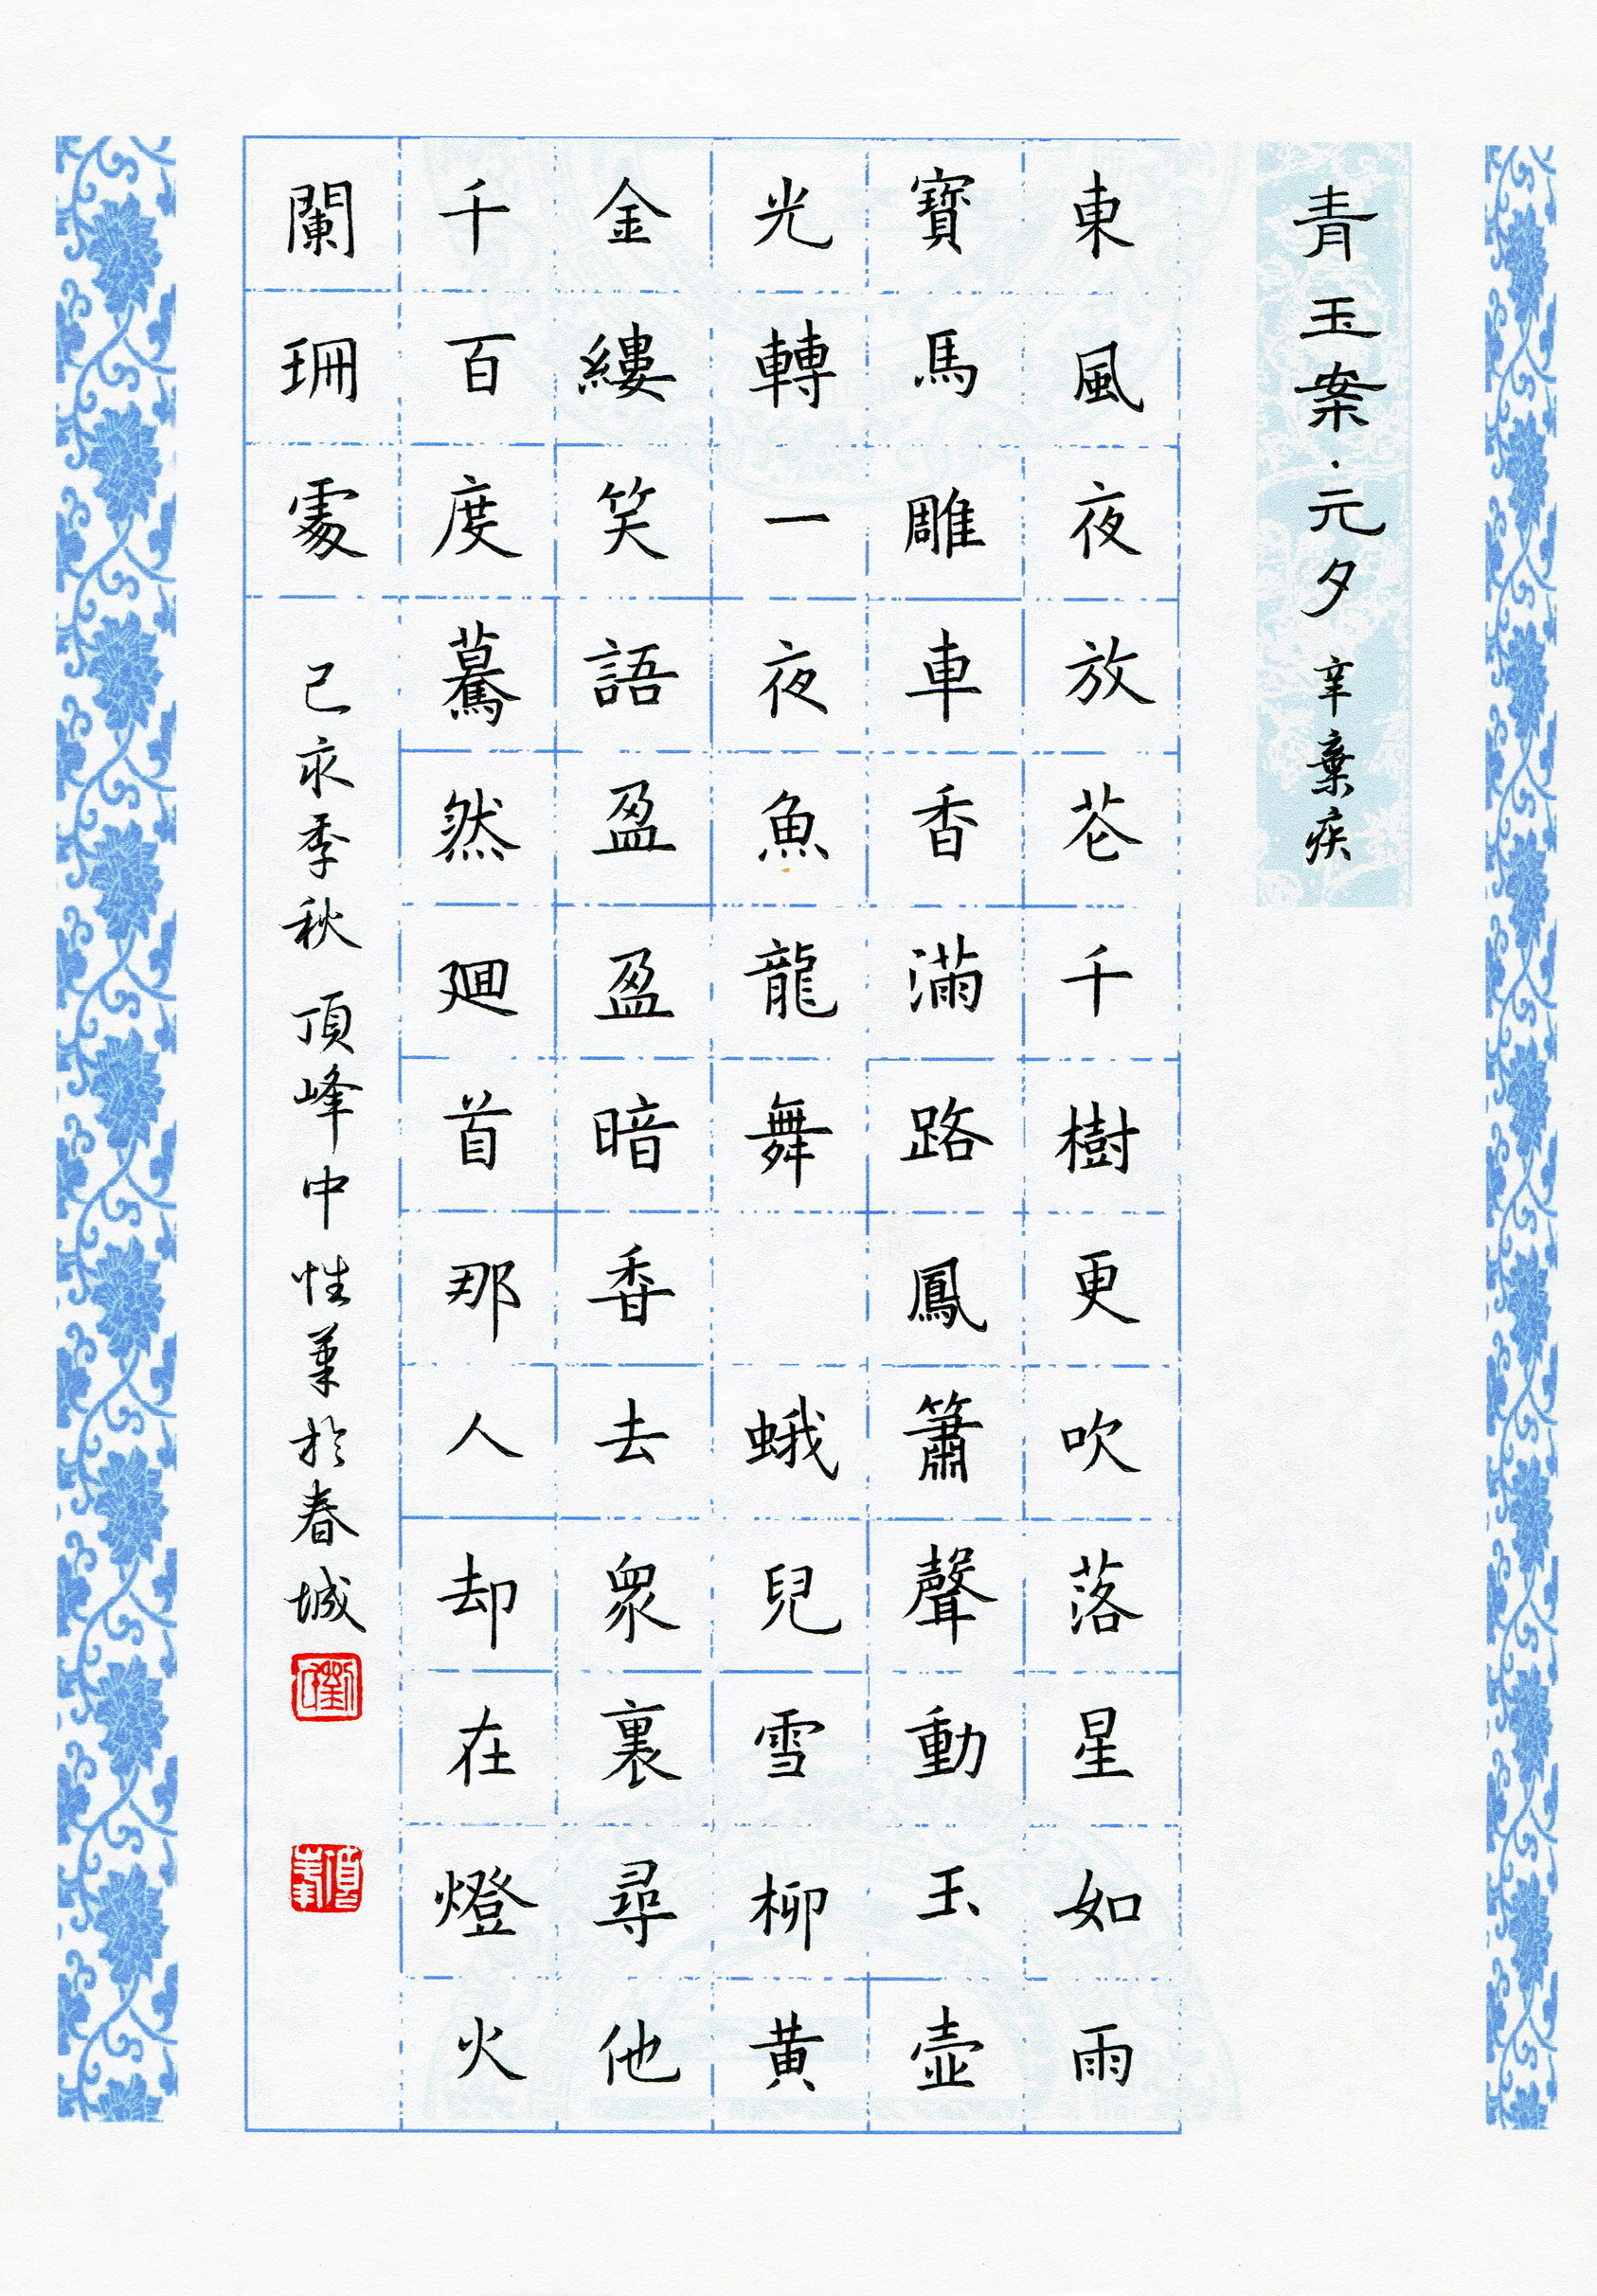 青玉案·元夕 辛棄疾
東風夜放花千樹更吹落星如雨
寶馬雕車香滿路鳳簫聲動玉壺
光轉一夜魚龍舞 蛾兒雪柳黃
金縷笑語盈盈暗香去眾裏尋他
千百度驀然廻首那人却在燈火
闌珊處 己亥季秋 頂峰中性筆於春城